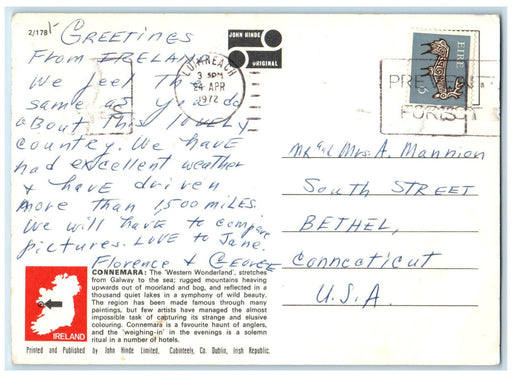 2/178
GREETINGS
FROM IRELAND
We feel the
same as you do
about this LOVELY
country. We have
had excellent weather
& have driven
more than 1,500 miles.
We will have to compare
pictures. LOVE to Jane.
Florence & GEORGE
JOHN HINDE
ORIGINAL
LUIMNEACH
3 30PM
24 APR
1972
EIRE
Mr and Mrs. A. Mannion
South STREET
BETHEL,
Connecticut
U.S.A.
IRELAND
CONNEMARA: The 'Western Wonderland', stretches
from Galway to the sea; rugged mountains heaving
upwards out of moorland and bog, and reflected in a
thousand quiet lakes in a symphony of wild beauty.
The region has been made famous through many
paintings, but few artists have managed the almost
impossible task of capturing its strange and elusive
colouring. Connemara is a favourite haunt of anglers,
and the 'weighing-in' in the evenings is a solemn
ritual in a number of hotels.
Printed and Published by John Hinde Limited, Cabinteely, Co. Dublin, Irish Republic.